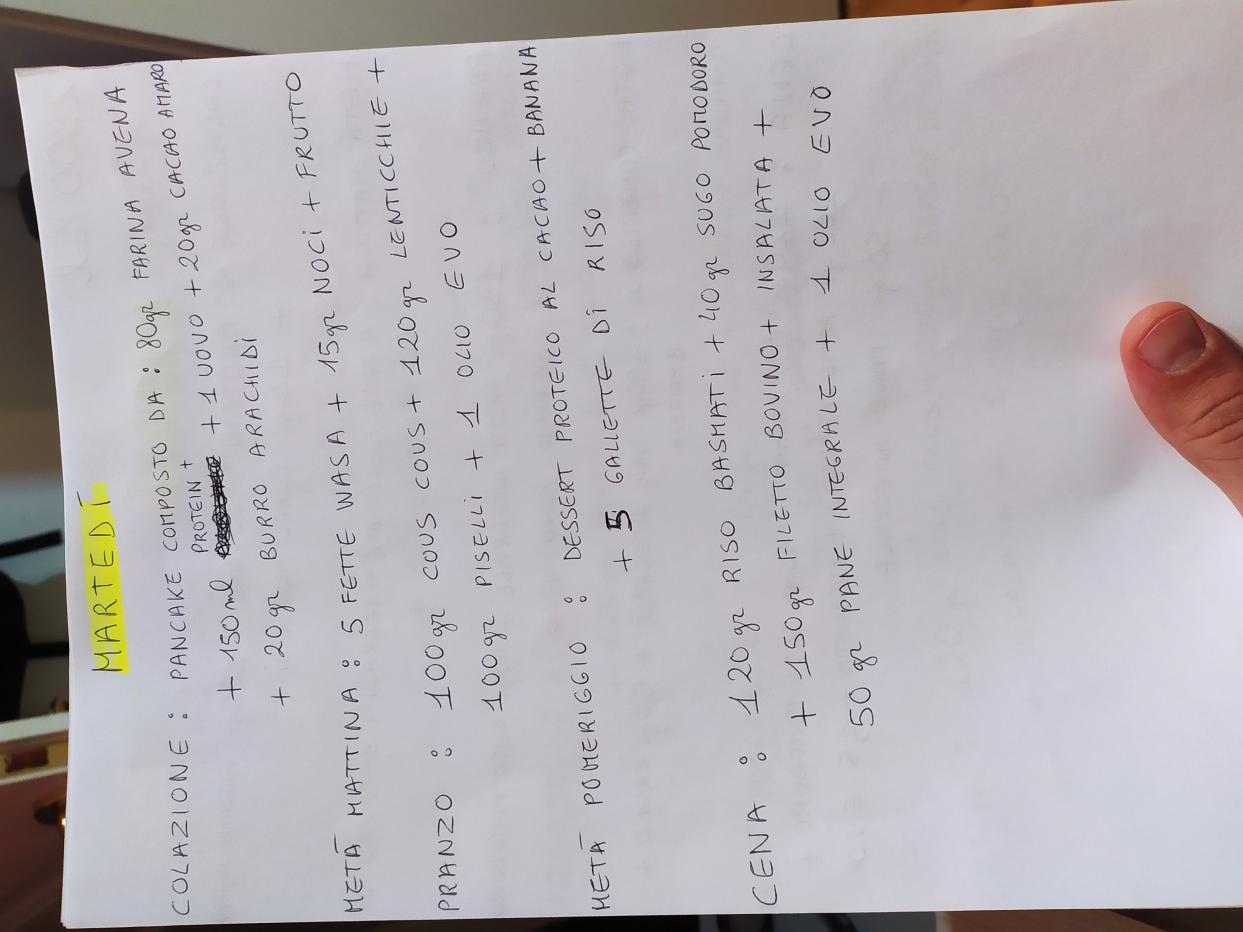 MARTEDÌ
COLAZIONE : PANCAKE COMPOSTO DA : 80gr FARINA AVENA
PROTEIN +
+ 150ml + 1 UOVO + 20gr CACAO AMARO
+ 20gr BURRO ARACHIDI
METÀ MATTINA : 5 FETTE WASA + 15gr NOCI + FRUTTO
PRANZO : 100gr COUS COUS + 120gr LENTICCHIE +
100gr PISELLI + 1 OLIO EVO
METÀ POMERIGGIO : DESSERT PROTEICO AL CACAO + BANANA
+ 5 GALLETTE DI RISO
CENA : 120gr RISO BASMATI + 40gr SUGO POMODORO
+ 150gr FILETTO BOVINO + INSALATA +
50gr PANE INTEGRALE + 1 OLIO EVO